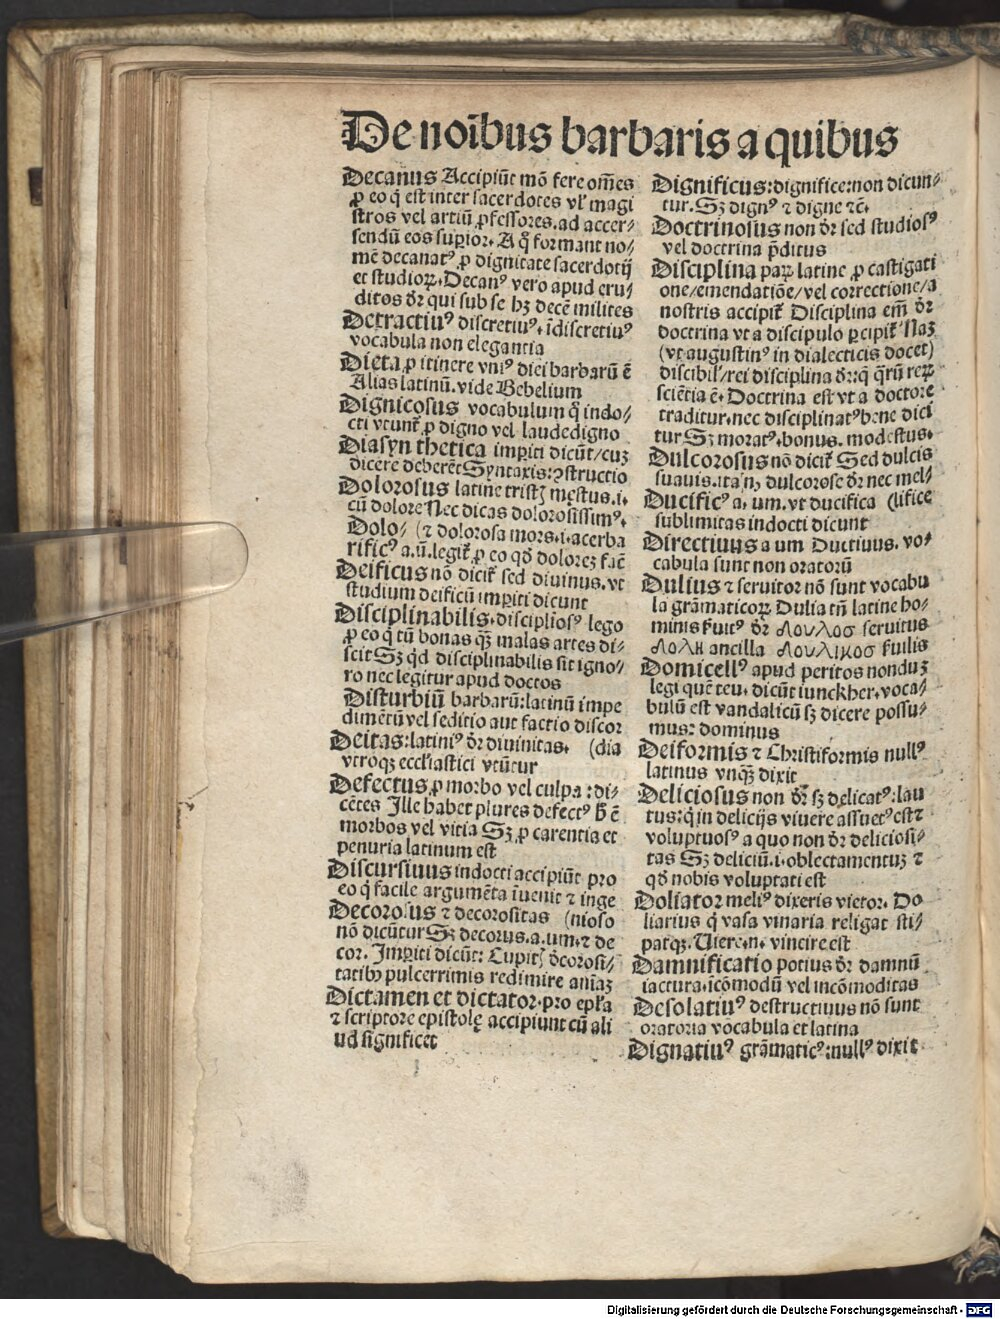 De noībus barbaris a quibus
Decanus Accipiūt mō fere om̄es
ꝓ eo q̄ est inter sacerdotes vl' magi
stros vel artiū ꝓfessores. ad accer⸗
sendū eos supior. A q̊ formant no⸗
mē decanatꝰ ꝓ dignitate sacerdotij
et studioꝝ. Decanꝰ vero apud eru⸗
ditos dr̄ qui sub se hꝫ decē milites
Detractiuꝰ discretiuꝰ. īdiscretiuꝰ
vocabula non elegantia
Dieta ꝓ itinere vniꝰ diei barbarū ē
Alias latinū. vide Bebelium
Dignicosus vocabulum q̊ indo⸗
cti vtunt̄ ꝓ digno vel laude digno
Diasyn thetica impiti dicūt/cuꝫ
dicere deberēt Syntaxis: ꝯstructio
Dolorosus latine tristꝭ mestus. i.
cū dolore Nec dicas dolorosissimꝰ.
Dolo⸗ (⁊ dolorosa mors. i. acerba
rificꝰ a. ū. legit̄ ꝓ eo qď doloreꝫ facit
Deificus nō dicit̄ sed diuinus. vt
studium deificū impiti dicunt
Disciplinabilis. disciplīosꝰ lego
ꝓ eo q̄ tū bonas qꝫ malas artes di⸗
scit Sꝫ qd disciplinabilis sit igno⸗
ro nec legitur apud doctos
Disturbiū barbarū: latinū impe
dimētū vel seditio aut factio discor
Deitas: latiniꝰ dr̄ diuinitas. (dia
vtroqꝫ ecclīastici vtūtur
Defectus ꝓ morbo vel culpa: di⸗
cētes Ille habet plures defectꝰ h̄ ē
morbos vel vitia Sꝫ ꝓ carentia et
penuria latinum est
Discursiuus indocti accipiūt pro
eo q̄ facile argumēta īuenit ⁊ inge
Decorosus ⁊ decorositas (nioso
nō dicūtur Sꝫ decorus. a. um. ⁊ de
cor. Impiti dicūt: Cupitꝭ d̄corosi⸗
tatibꝫ pulcerrimis redimire aniāꝫ
Dictamen et dictator. pro epl'a
⁊ scriptore epistolę accipiunt cū ali
ud significet
Dignificus: dignifice: non dicun⸗
tur. Sꝫ dignꝰ ⁊ digne ⁊c̄.
Doctrinosus non dr̄ sed studiosꝰ
vel doctrina p̄ditus
Disciplina paꝝ latine ꝓ castigati
one/emendatiōe/vel correctione/a
nostris accipit̄ Disciplina em̄ dr̄
doctrina vt a discipulo ꝑcipit̄ Naꝫ
(vt augustinꝰ in dialecticis docet)
discibil'/rei disciplina dr̄: q̊ q̄rū reꝝ
sciētia ē. Doctrina est vt a doctore
traditur. nec disciplinatꝰ bene dici
tur Sꝫ moratꝰ. bonus. modestus.
Dulcorosus nō dicit̄ Sed dulcis
suauis. ita nꝫ dulcorose dr̄ nec mel⸗
Ducificꝰ a. um. vt ducifica (lifice
sublimitas indocti dicunt
Directiuus a um Ductiuus. vo⸗
cabula sunt non oratorū
Dulius ⁊ seruitor nō sunt vocabu
la grāmaticoꝝ Dulia tn̄ latine ho⸗
minis f̄uitꝰ dr̄ δουλοσ seruitus
δολη ancilla δουλικοσ f̄uilis
Domicellꝰ apud peritos nonduꝫ
legi quē teu. dicūt iunckher. voca⸗
bulū est vandalicū sꝫ dicere possu⸗
mus: dominus
Deiformis ⁊ Christiformis nullꝰ
latinus vnq̄ꝫ dixit
Deliciosus non dr̄ sꝫ delicatꝰ: lau
tus: q̊ in delicijs viuere assuetꝰ est ⁊
voluptuosꝰ a quo non dr̄ deliciosi⸗
tas Sꝫ deliciū. i. oblectamentuꝫ ⁊
qď nobis voluptati est
Doliator meliꝰ dixeris vietor. Do
liarius q̊ vasa vinaria religat sti⸗
patqꝫ. Uiere. n. vincire est
Damnificatio potius dr̄ damnū
iactura. icōmodū vel incōmoditas
Desolatiuꝰ destructiuus nō sunt
oratoria vocabula et latina
Dignatiuꝰ grāmaticꝰ: nullꝰ dixit
Digitalisierung gefördert durch die Deutsche Forschungsgemeinschaft - DFG